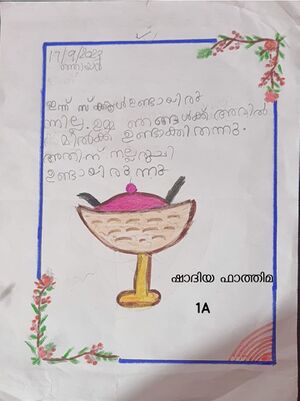 ഞായർ
ഇന്ന് സ്ക്കൂൾ ഉണ്ടായിരു
ന്നില്ല. ഉമ്മ ഞങ്ങൾക്ക് അവിൽ
മിൽക്ക് ഉണ്ടാക്കി തന്നു.
അതിന് നല്ല രുചി
ഉണ്ടായിരുന്നു
ഷാദിയ ഫാത്തിമ
1A